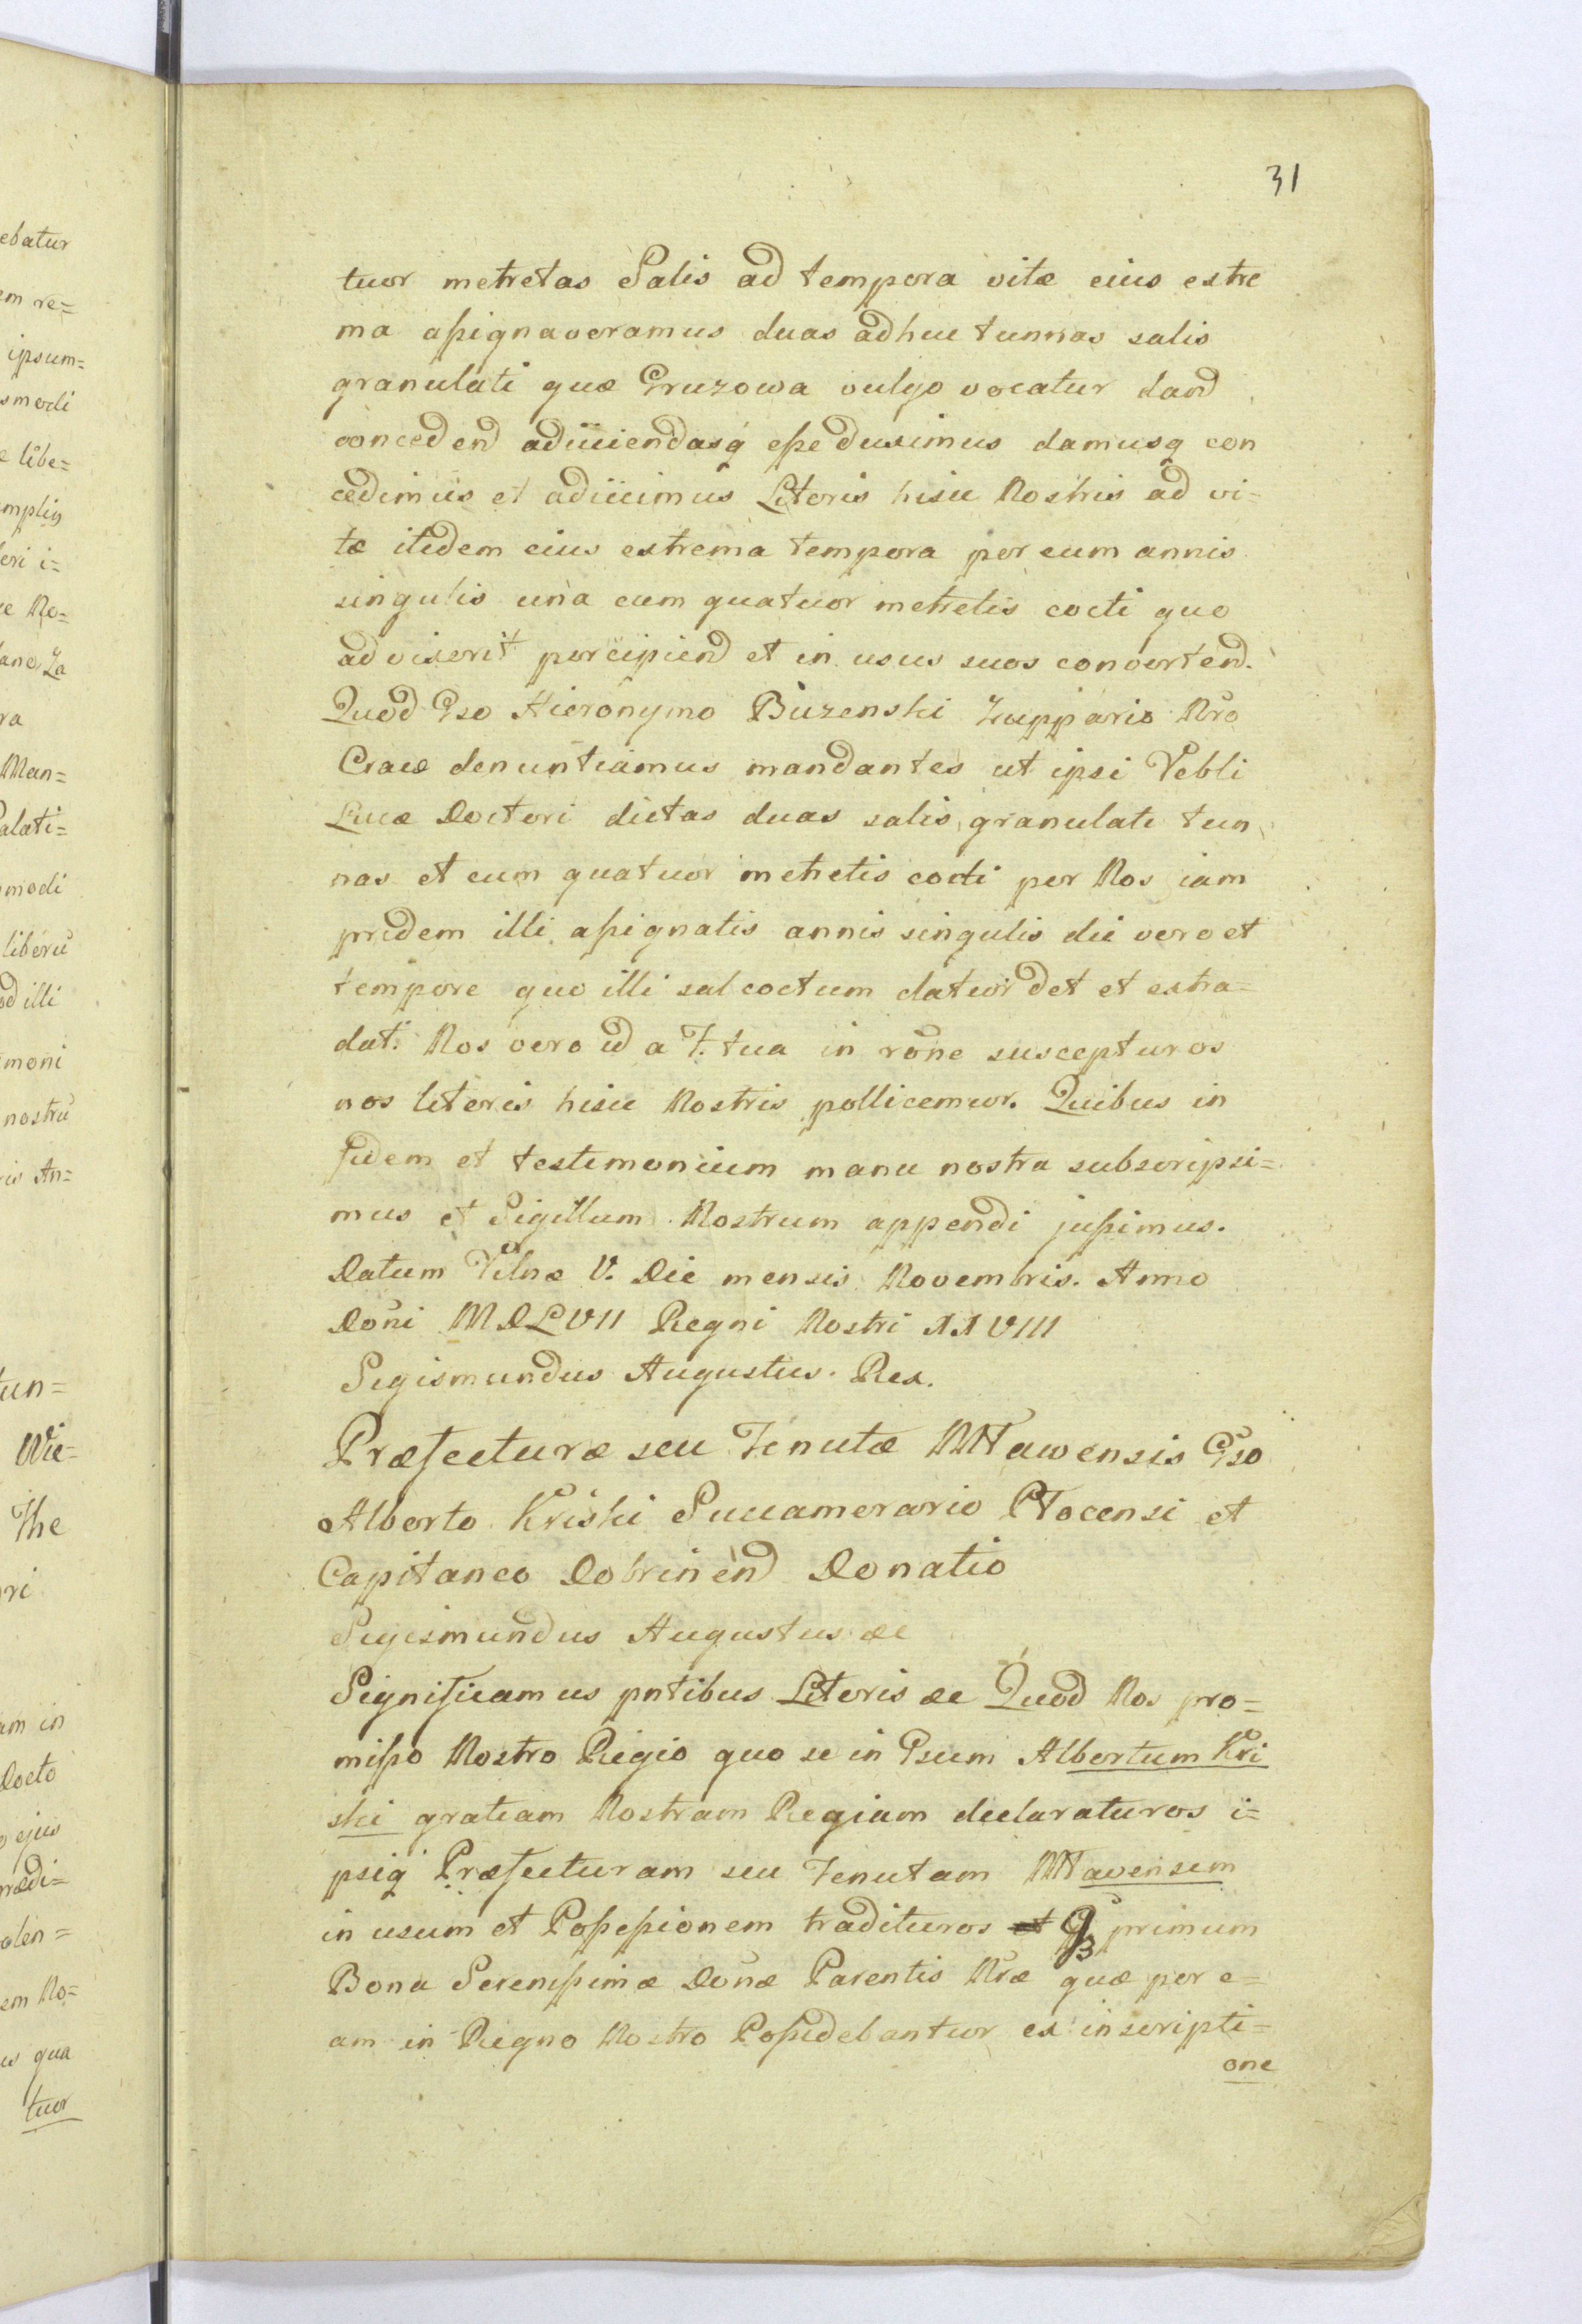 31
tuor metretas Salis ad tempora vitæ eius extre
ma assignaveramus duas adhuc tunnas salis
granulati quæ Gruzowa vulgo vocatur dand
concedend adiiciendasq esse duximus damusq con
cedimus et adiicimus Literis hisce Nostris ad vi=
tæ itidem eius extrema tempora per eum annis
singulis una cum quatuor metretis cocti quo
ad vixerit percipiend et in usus suos convertend.
Quod Gso Hieronymo Buzenski Zuppario Nro
Cracæ denuntiamus mandantes ut ipsi Vebli
Lucæ Doctori dictas duas salis granulati tun
nas et cum quatuor metretis cocti per Nos iam
pridem illi assignatis annis singulis die vero et
tempore quo illi sal coctum datur det et extra=
dat. Nos vero id a F. tua in rone suscepturos
nos literis hisce Nostris pollicemur. Quibus in
fidem et testimonium manu nostra subscripsi=
mus et Sigillum Nostrum appendi jussimus.
Datum Vilnæ V. Die mensis Novembris. Anno
Doni MDLVII Regni Nostri XXVIII
Sigismundus Augustus. Rex.
Præfecturæ seu Tenutæ Mławensis Gso
Alberto Kriski Succamerario Płocensi et
Capitaneo Dobrinend Donatio
Sigismundus Augustus &c
Significamus pntibus Literis &c Quod Nos pro=
misso Nostro Regio quo se in Gsum Albertum Kri
ski gratiam Nostram Regiam declaraturos i=
psiq Præfecturam seu Tenutam Mławensem
in usum et Possessionem tradituros et primum
Bona Serenissimæ Donæ Parentis Nræ quæ per e=
am in Regno Nostro Possidebantur ex inscripti=
one
ebatur
em re=
ipsum=
smodi
e libe=
implis
eri i=
ce No=
ano Za
ra
Man=
Palati=
modi
liberu
od illi
moni
nostru
ris An=
tun=
Wie=
The
ri
am in
Docto
ejus
prædi=
alen=
em No=
is qua
tuor